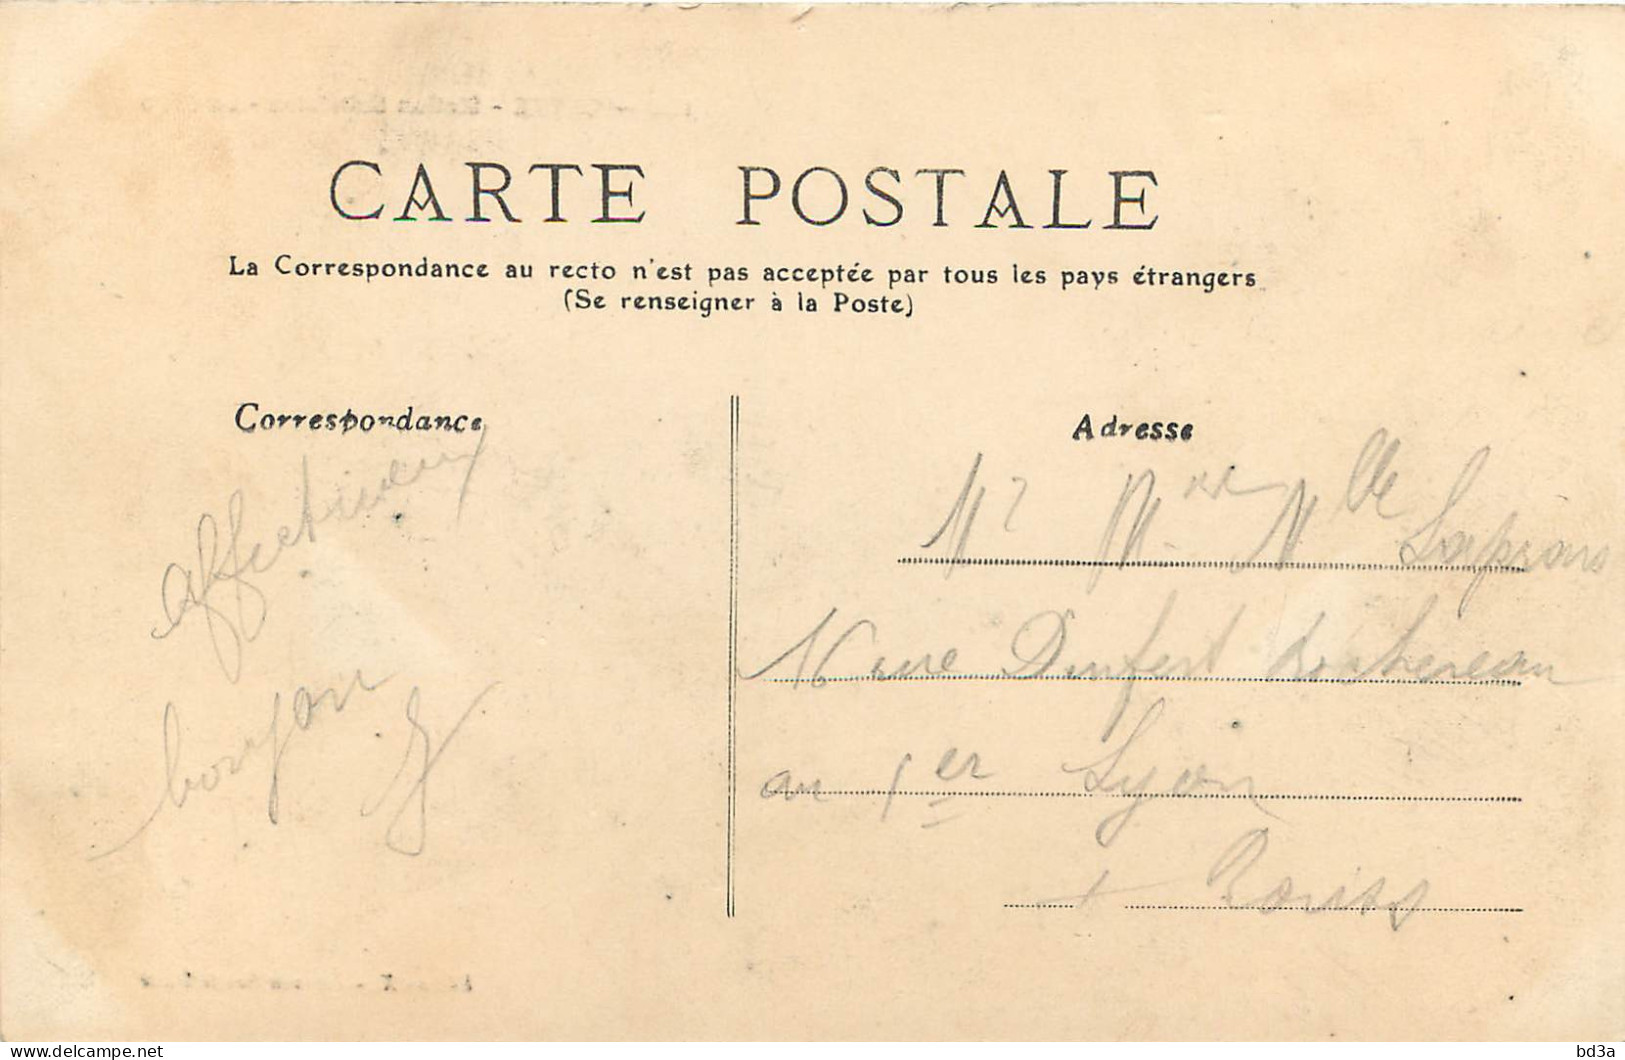 CARTE POSTALE
La Correspondance au recto n'est pas acceptée par tous les pays étrangers
(Se renseigner à la Poste)
Correspondance
affectueux
bonjour
Adresse
Mr Mme Mlle
16 rue Denfert Rochereau
au 1er Lyon
bd3a